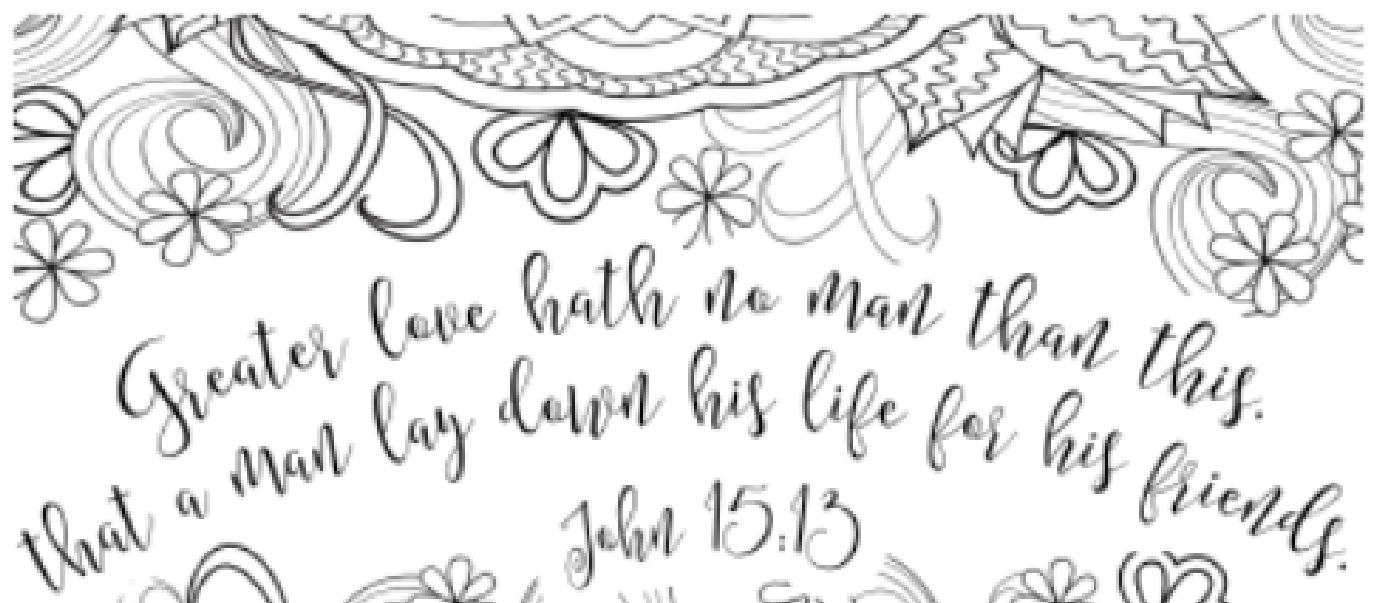 Greater love hath no man than this.
that a man lay down his life for his friends.
John 15:13